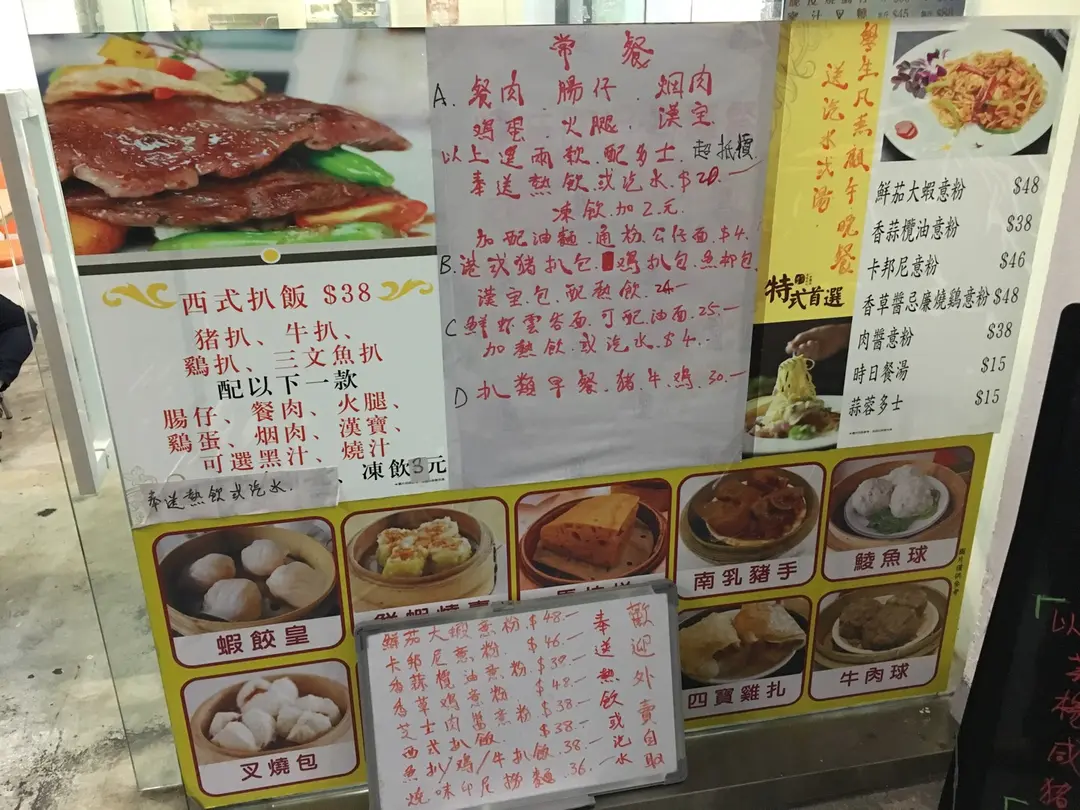 西式扒飯 $38
猪扒、牛扒、
鷄扒、三文魚扒
配以下一款
腸仔、餐肉、火腿、
鷄蛋、烟肉、漢寶、
可選黑汁、燒汁
、凍飲3元
奉送熱飲或汽水.
常餐
A. 餐肉.腸仔.烟肉
鸡蛋.火腿.漢宝
以上選兩款.配多士.超抵價.
奉送熱飲或汽水.$20.一
凍飲.加2元.
加配油麵.通粉.公仔面.$4.
B.港式猪扒包.鸡扒包.魚柳包.
漢宝包.配熱飲.24一
C 鮮虾雲吞面.可配油面.25.一
加熱飲.或汽水.$4.一
D 扒類早餐.猪.牛.鸡.30.一
學生凡惠顧午晚餐
送汽水或湯
特式首選
鮮茄大蝦意粉 $48
香蒜欖油意粉 $38
卡邦尼意粉 $46
香草醬忌廉燒鷄意粉 $48
肉醬意粉 $38
時日餐湯 $15
蒜蓉多士 $15
蝦餃皇
南乳豬手
鯪魚球
叉燒包
四寶雞扎
牛肉球
鮮茄大蝦意粉.$48.一
卡邦尼意粉.$46.一
香蒜欖油意粉.$38.一
香草鸡意粉.$48.一
芝士肉醬意粉.$38.一
西式扒飯.$38.一
魚扒/鸡/牛扒飯.38.一
燒味印尼撈麵.36.一
奉送熱飲或汽水
歡迎外賣自取